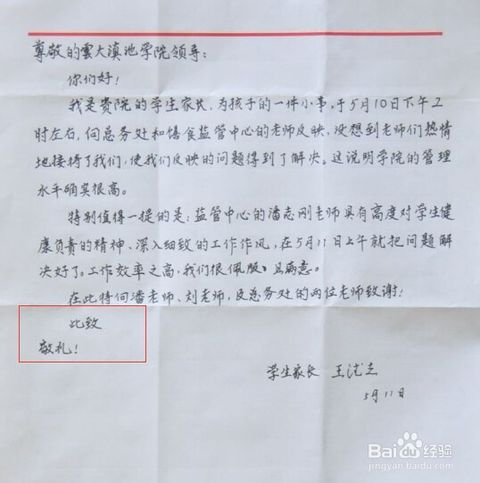 尊敬的雲大滇池学院领导:
你们好!
我是贵院的学生家长,为孩子的一件小事,于5月10日下午2
时左右,向总务处和膳食监管中心的老师反映,没想到老师们热情
地接待了我们,使我们反映的问题得到了解决。这说明学院的管理
水平确实很高。
特别值得一提的是:监管中心的潘志刚老师具有高度对学生健
康负责的精神、深入细致的工作作风,在5月11日上午就把问题解
决好了。工作效率之高,我们很佩服、且满意。
在此特向潘老师、刘老师,及总务处的两位老师致谢!
此致
敬礼!
学生家长 王
5月11日
Baidu经验
jingyan.baidu.com